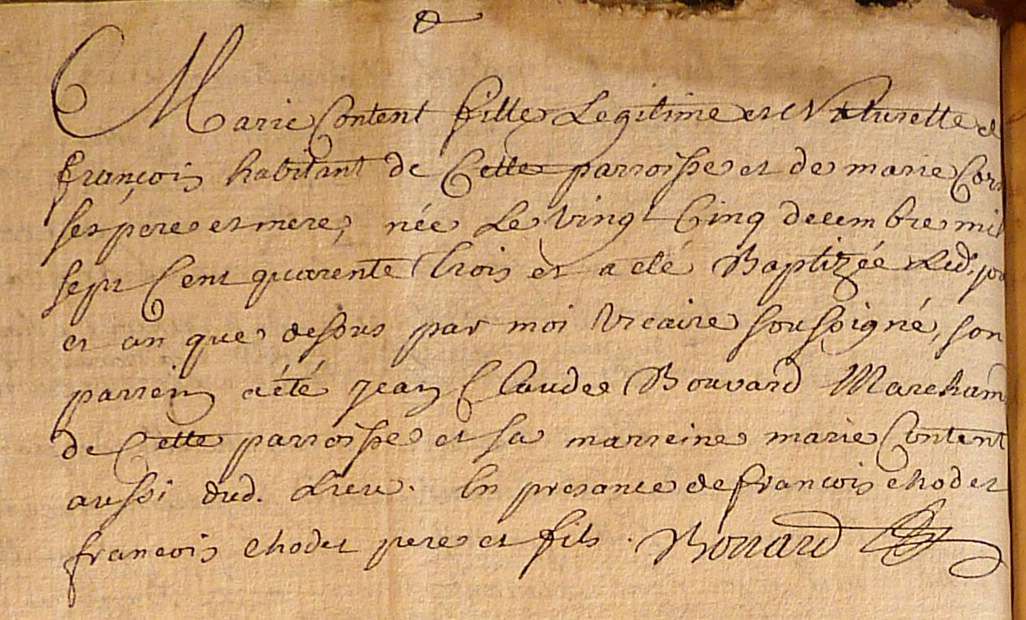 Marie Content fille Legitime et Naturelle de
françois habitant de Cette parroisse et de marie
ses pere et mere, née Le vingt Cinq decembre mil
sept Cent quarente trois et a eté Baptizée Led. jou
et an que dessus par moi vicaire soussigné, son
parrein a été jean Claude Bouvard Marcham
de Cette parroisse et sa marreine marie Content
aussi dud. Lieu. En presance de françois chodet
francois chodet pere et fils. Bonard